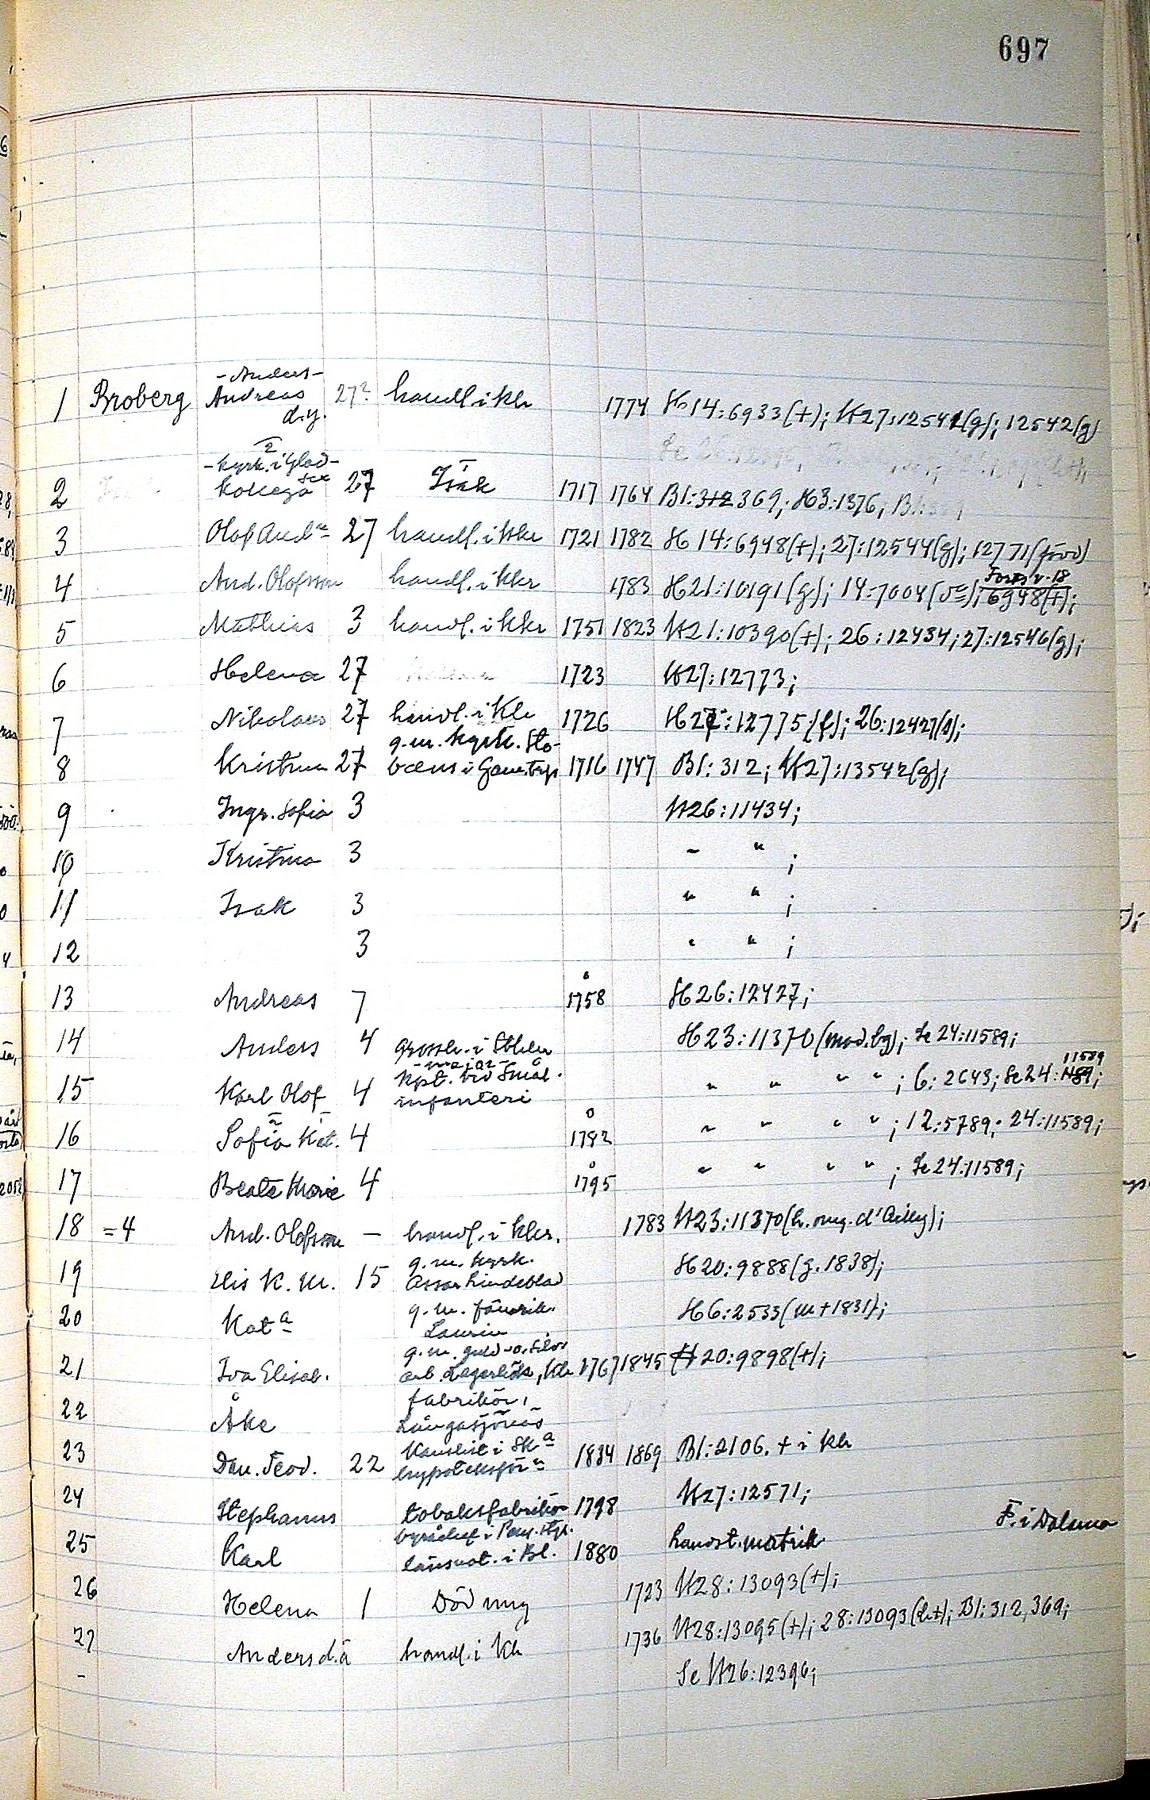 697
- Anders -
1 Broberg Andreas 27? handl. i Khr 1774 H14:6933(+); H27:12541(g); 12542(g)
d.y.
- kyrk. i Glad-
2 Kollega 27 Isak 1717 1764 Bl: 369; H3:1376;
3 Olof And. 27 handl. i Khr 1721 1782 H14:6948(+); 27:12544(g); 12771(förd)
4 And. Olofsson handl. i Khr 1783 H21:10191(g); 14:7004 6948(+);
5 Mathias 3 handl. i Khr 1751 1823 H21:10390(+); 26:12434; 27:12546(g);
6 Helena 27 1723 H27:12773;
7 Nikolaus 27 handl. i Khr 1726 H27:12775(f); 26:12427(s);
g.m. kyrk. Sto-
8 Kristina 27 bæus i 1716 1747 Bl: 312; H27:13542(g);
9 Ingr. Sofia 3 H26:11434;
10 Kristina 3 " " ;
11 Isak 3 " " ;
12 3 " " ;
13 Andreas 7 1758 H26:12427;
14 Anders 4 grossh. i Sthlm H23:11370 (mod. bg); Se 24:11589;
- major -
15 Karl Olof 4 Kpt. vid Smål. " " " " ; 6:2643; Se 24: 11589;
infanteri
16 Sofia Kat. 4 1792 " " " " ; 12:5789; 24:11589;
17 Beata Marie 4 1795 " " " " ; Se 24:11589;
18 =4 And. Olofsson - handl. i Khr. 1783 H23:11370(h. omg. d'Ailly);
g.m. kyrk.
19 Elis K. M. 15 Assar Lindeblad H20:9888(g.1838);
g.m. fänrik.
20 Kata Laurin H6:2533(m+1831);
g.m. guld-o. silv
21 Eva Elisab. arb. Lagerlöf, Khr 1767 1845 H20:9898(+);
fabrikör,
22 Åke Långasjönäs
Kanslist i Sk.
23 Dan. Teod. 22 hypoteksför. 1834 1869 Bl: 2106. + i Kh
24 Stephanus tobaksfabrikör 1798 H27:12571;
byråchef i Pens. styr. F. i Dalarna
25 Karl länsnot. i Bl. 1880 landst. matrik
26 Helena 1 Död ung 1723 H28:13093(+);
27 Anders d.ä handl. i Kh 1736 H28:13095(+); 28:13093(h+); Bl: 312, 369;
- Se H26:12396;